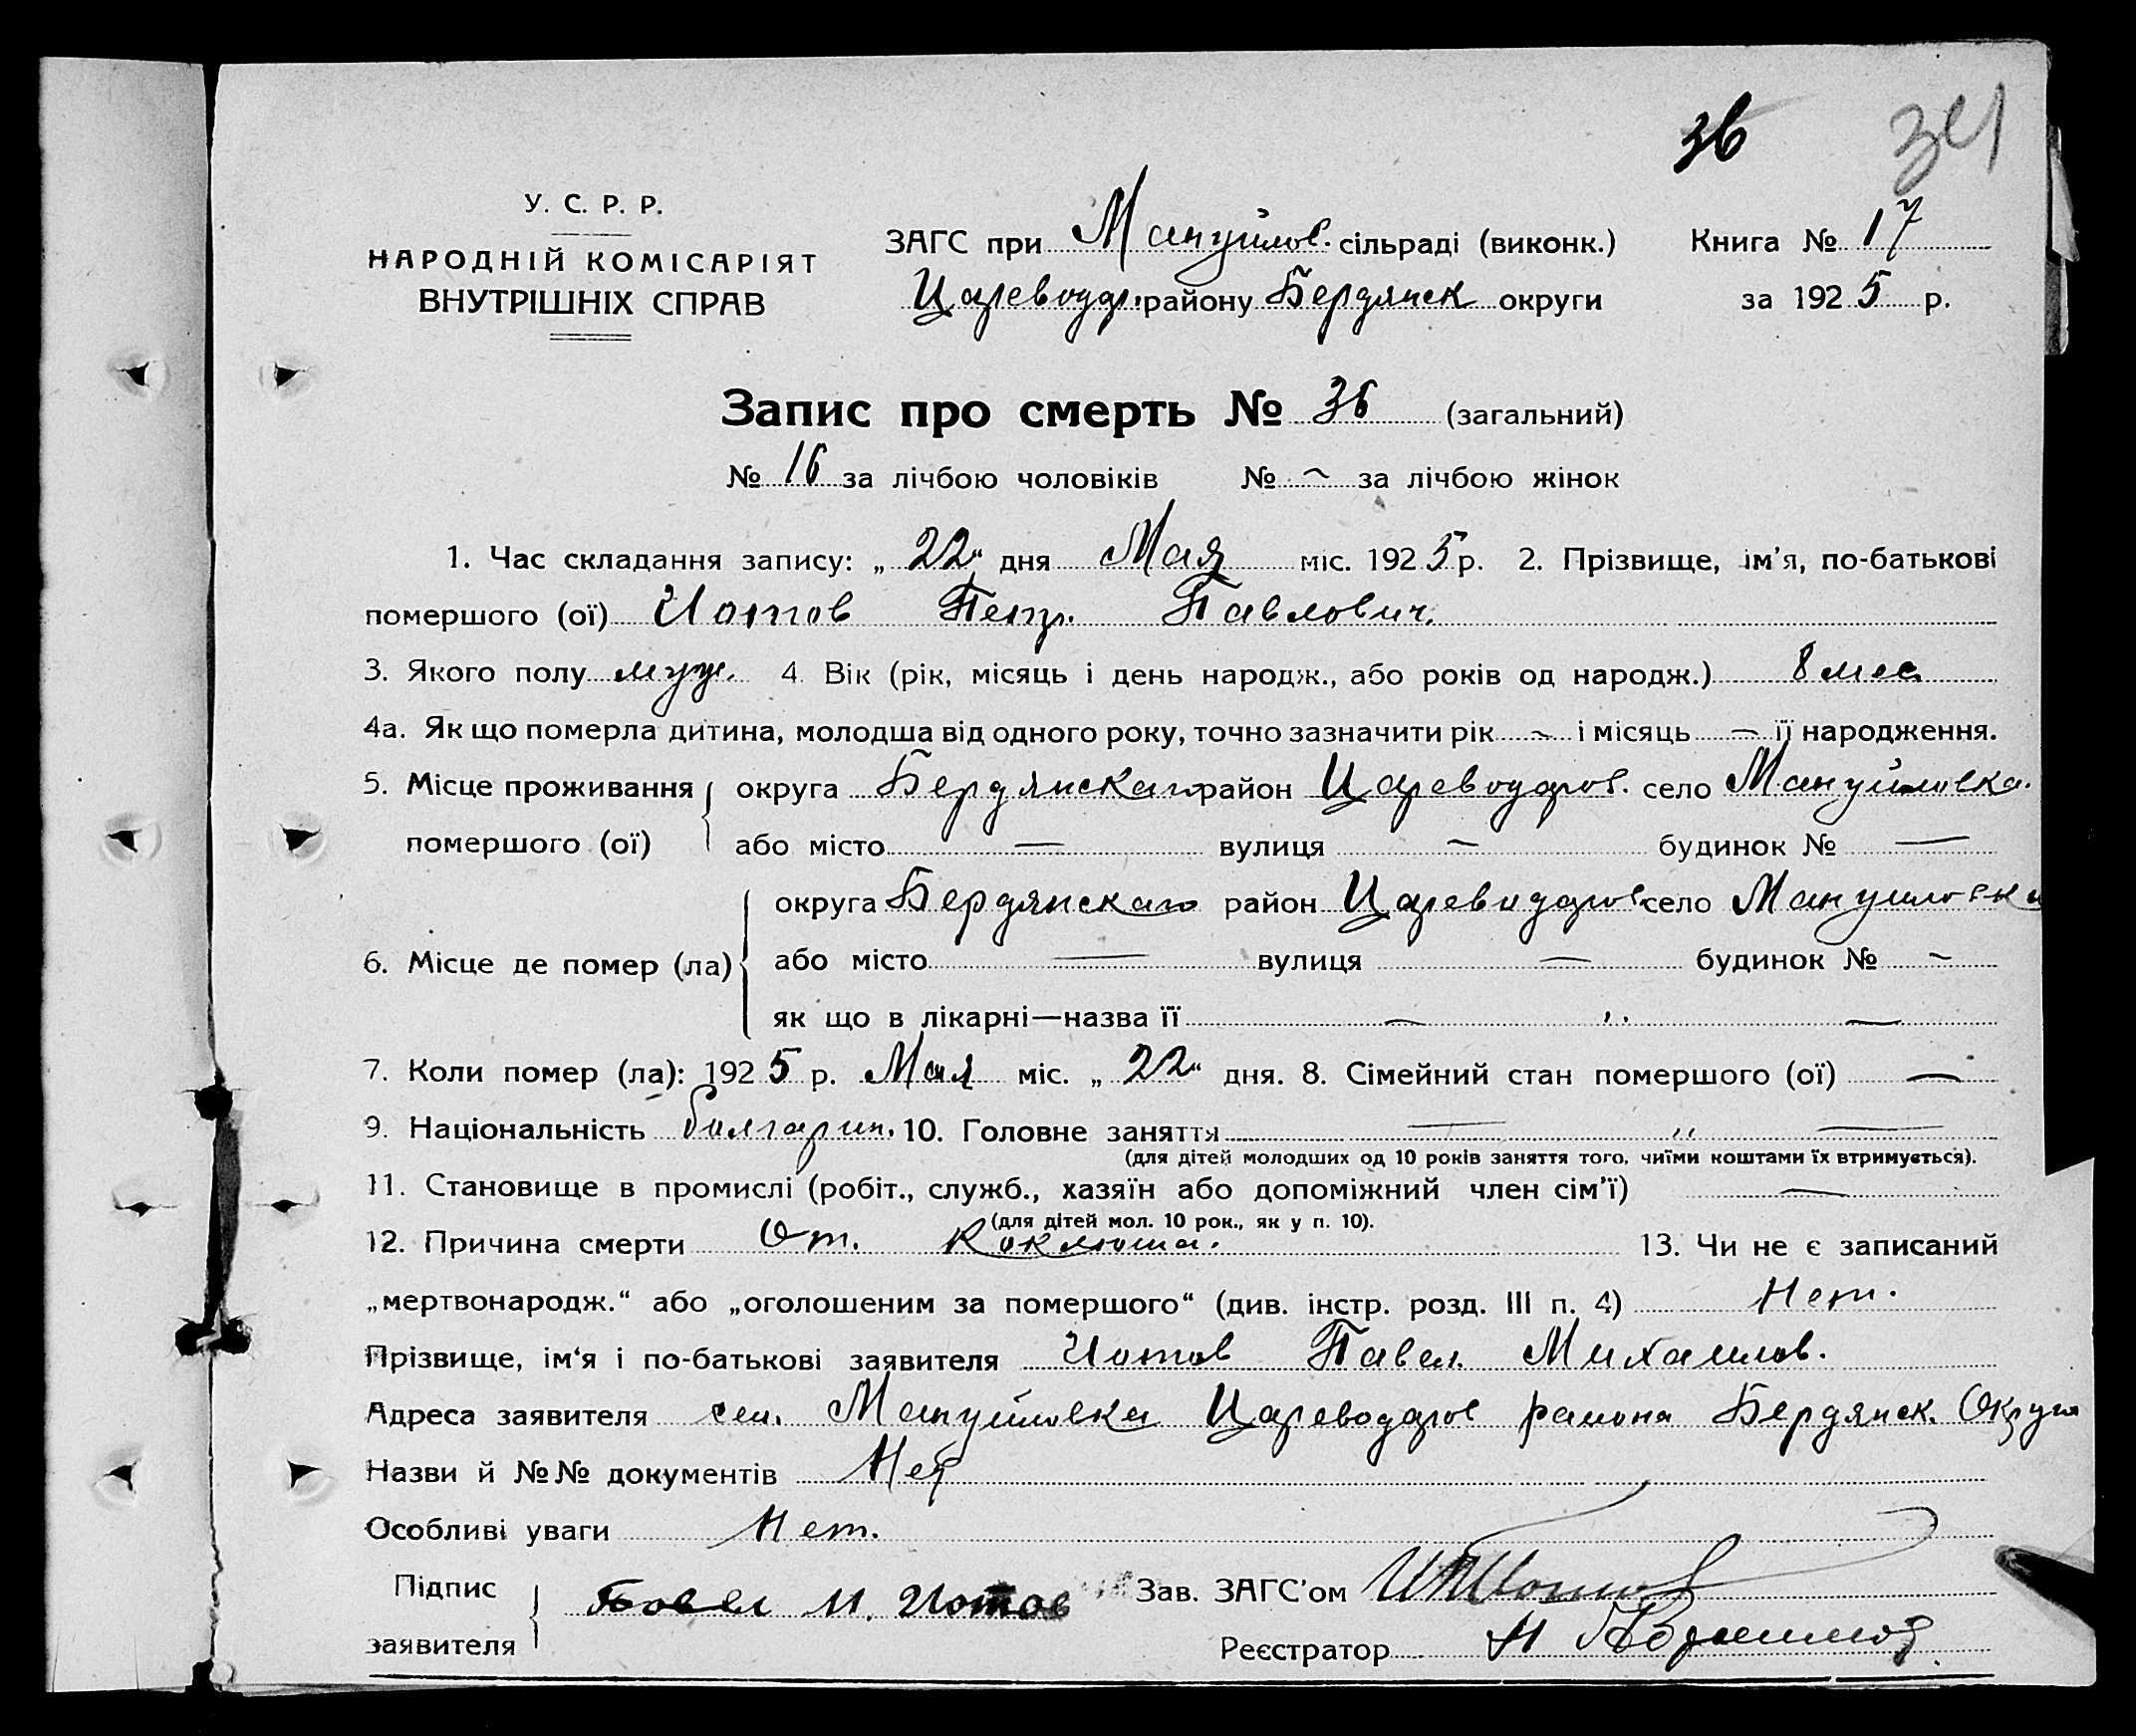 36 34
У. С. Р. Р.
НАРОДНІЙ КОМІСАРІЯТ
ВНУТРІШНІХ СПРАВ
ЗАГС при Мануйлов. сільраді (виконк.) Книга № 17
Цареводар. району Бердянск округи за 1925 р.
Запис про смерть № 36 (загальний)
№ 16 за лічбою чоловіків № ~ за лічбою жінок
1. Час складання запису: „22“ дня Мая міс. 1925 р. 2. Прізвище, ім’я, по-батькові
помершого (ої) Иотов Петр. Павлович.
3. Якого полу муж. 4. Вік (рік, місяць і день народж., або років од народж.) 8 мес.
4а. Як що померла дитина, молодша від одного року, точно зазначити рік ~ і місяць — її народження.
5. Місце проживання помершого (ої) округа Бердянскаго район Цареводаров. село Мануйловка.
або місто — вулиця ~ будинок № —
6. Місце де помер (ла) округа Бердянскаго район Цареводаров село Мануиловка
або місто — вулиця — будинок № ~
як що в лікарні—назва її — „ —
7. Коли помер (ла): 1925 р. Мая міс. „22“ дня. 8. Сімейний стан помершого (ої) —
9. Національність болгарин. 10. Головне заняття — „ —
(для дітей молодших од 10 років заняття того, чиїми коштами їх втримується).
11. Становище в промислі (робіт., служб., хазяїн або допоміжний член сім’ї) —
(для дітей мол. 10 рок., як у п. 10).
12. Причина смерти От. Коклюша. 13. Чи не є записаний
„мертвонародж.“ або „оголошеним за помершого“ (див. інстр. розд. III п. 4) Нет.
Прізвище, ім‘я і по-батькові заявителя Иотов Павел. Михаилов.
Адреса заявителя сел. Мануйловка Цареводаров района Бердянск. Округа
Назви й №№ документів Нет
Особливі уваги Нет.
Підпис заявителя Повел М. Иотов Зав. ЗАГС’ом
Реєстратор Н